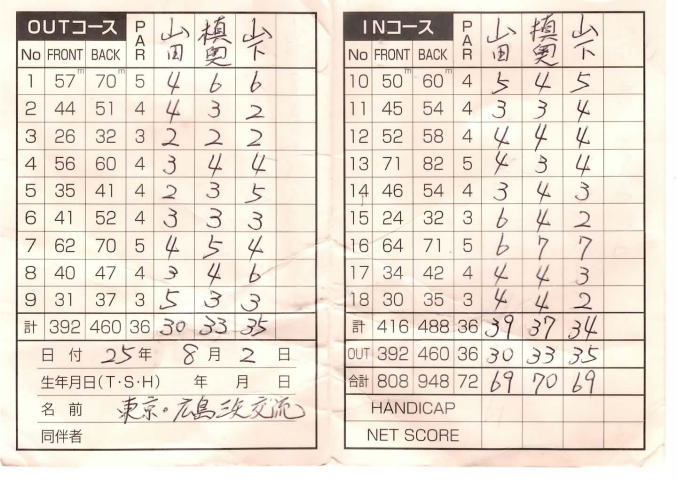 OUTコース PAR 山田 槙奥 山下
No FRONT BACK
1 57m 70m 5 4 6 6
2 44 51 4 4 3 2
3 26 32 3 2 2 2
4 56 60 4 3 4 4
5 35 41 4 2 3 5
6 41 52 4 3 3 3
7 62 70 5 4 5 4
8 40 47 4 3 4 6
9 31 37 3 5 3 3
計 392 460 36 30 33 35
日付 25年 8月 2日
生年月日(T・S・H) 年 月 日
名前 東京・広島三矢交流
同伴者
INコース PAR 山田 槙奥 山下
No FRONT BACK
10 50m 60m 4 5 4 5
11 45 54 4 3 3 4
12 52 58 4 4 4 4
13 71 82 5 4 3 4
14 46 54 4 3 4 3
15 24 32 3 6 4 2
16 64 71 5 6 7 7
17 34 42 4 4 4 3
18 30 35 3 4 4 2
計 416 488 36 39 37 34
OUT 392 460 36 30 33 35
合計 808 948 72 69 70 69
HANDICAP
NET SCORE